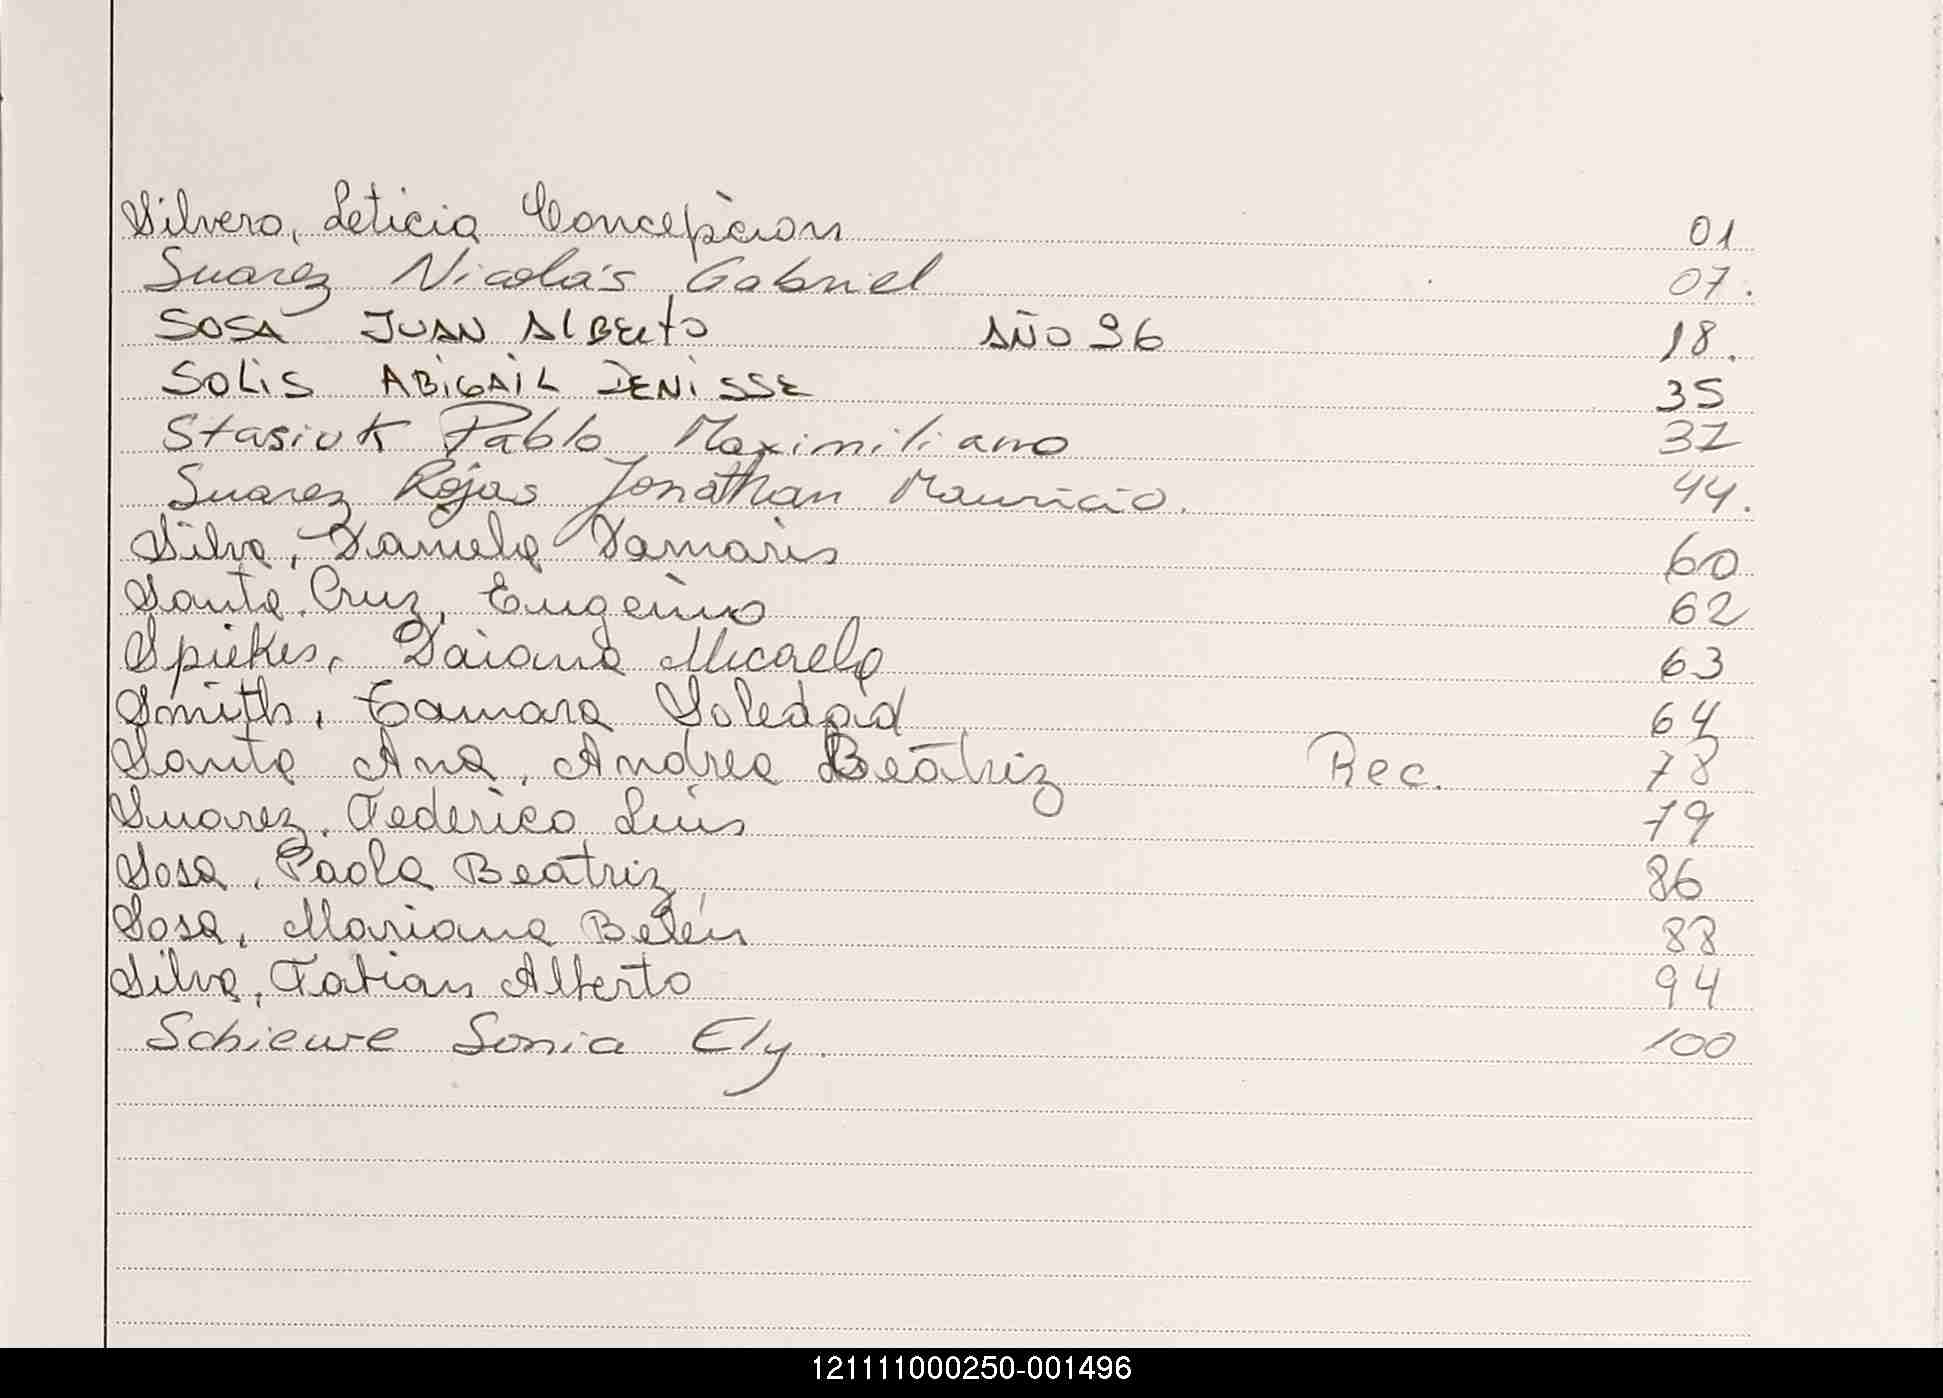 Silvero, Leticia Concepcion 01
Suarez Nicolás Gabriel 07.
SOSA JUAN ALBERTO AÑO 96 18.
SOLIS ABIGAIL DENISSE 35
Stasiuk Pablo Maximiliano 37
Suarez Rojas Jonathan Mauricio. 44.
Silva, Daniela Damaris 60
Santa Cruz, Eugenio 62
Spiekes, Daiana Micaela 63
Smith, Tamara Soledad 64
Santa Ana, Andrea Beatriz Rec. 78
Suarez, Federico Luis 79
Sosa, Paola Beatriz 86
Sosa, Mariana Belén 88
Silva, Fabian Alberto 94
Schiewe Sonia Ely. 100
121111000250-001496